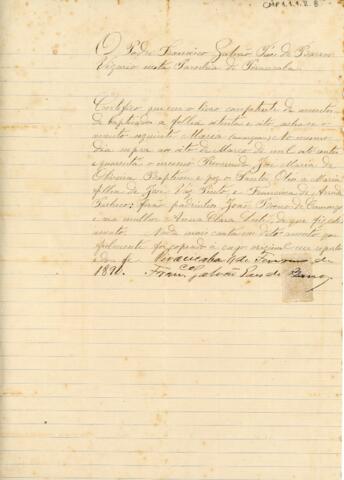 CMP 1.1.2.8
O Padre Francisco Galvão Paes de Barros
Vigario nesta Parochia de Piracicaba
Certifico que em o livro competente de assentos
de baptisados a folha oitenta e oito, acha-se o
assento seguinte Maria
dia supra no oito de Março de mil oito centos
e quarenta o mesmo Reverendo José Maria de
Oliveira Baptisou e poz os Santos Oleos a Maria
filha de José Vaz Pinto e Francisca de
Pacheco: forão padrinhos João Bueno de Camargo
e sua mulher Anna Clara de que fiz este
assento. Nada mais contem dito assento que
fielmente foi copiado e cujo original me reporto
e dou fé Piracicaba de de
1890. Franco Galvão Paes de Barros